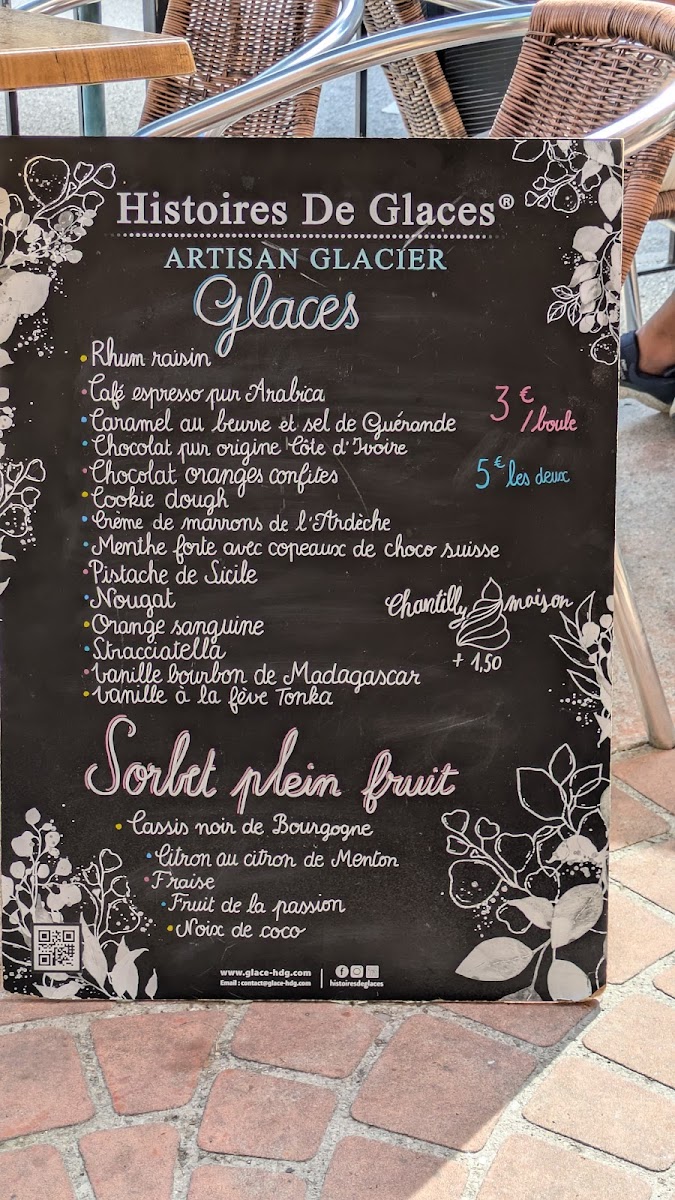 Histoires De Glaces®
ARTISAN GLACIER
Glaces
Rhum raisin
Café espresso pur Arabica
Caramel au beurre et sel de Guérande
Chocolat pur origine Côte d'Ivoire
Chocolat oranges confites
Cookie dough
Crème de marrons de l'Ardèche
Menthe forte avec copeaux de choco suisse
Pistache de Sicile
Nougat
Orange sanguine
Stracciatella
Vanille bourbon de Madagascar
Vanille à la fève Tonka
3€
/boule
5€ les deux
Chantilly maison
+ 1,50
Sorbet plein fruit
Cassis noir de Bourgogne
Citron au citron de Menton
Fraise
Fruit de la passion
Noix de coco
www.glace-hdg.com
Email : contact@glace-hdg.com
histoiresdeglaces